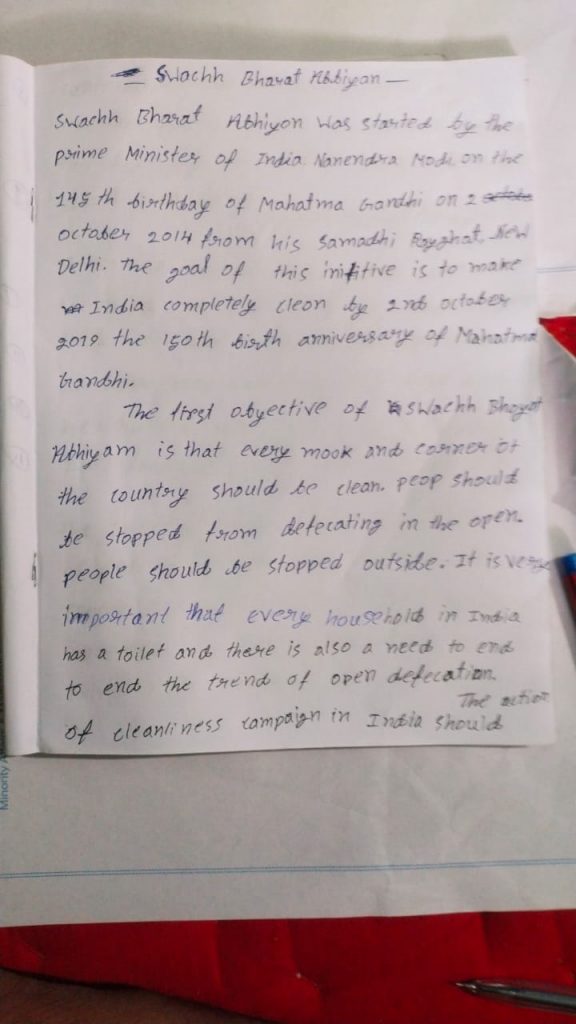 Swachh Bharat Abhiyan
Swachh Bharat Abhiyon was started by the
prime Minister of India Nanendra Modi on the
145 th birthday of Mahatma Gandhi on 2
october 2014 from his Samadhi Rajghat, New
Delhi. The goal of this initive is to make
India completely cleon by 2nd october
2019 the 150th birth anniversary of Mahatma
Gandhi.
The first objective of Swachh Bharat
Abhiyam is that every mook and corner of
the country should be clean. peop should
be stopped from defecating in the open.
people should be stopped outside. It is very
important that every household in India
has a toilet and there is also a need to end
to end the trend of open defecation.
The action
of cleanliness campaign in India should
Minority